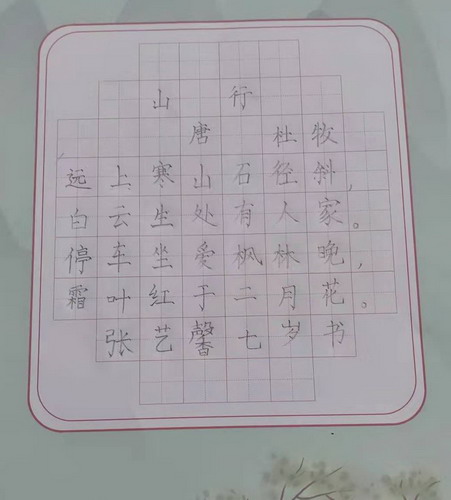 山行
唐 杜牧
远上寒山石径斜，
白云生处有人家。
停车坐爱枫林晚，
霜叶红于二月花。
张艺馨七岁书